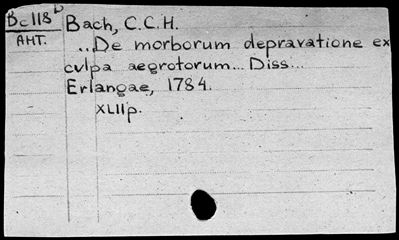 Bc118b Bach, C.C.H.
AHT. ...De morborum depravatione ex
culpa aegrotorum... Diss...
Erlangae, 1784.
XLIIp.